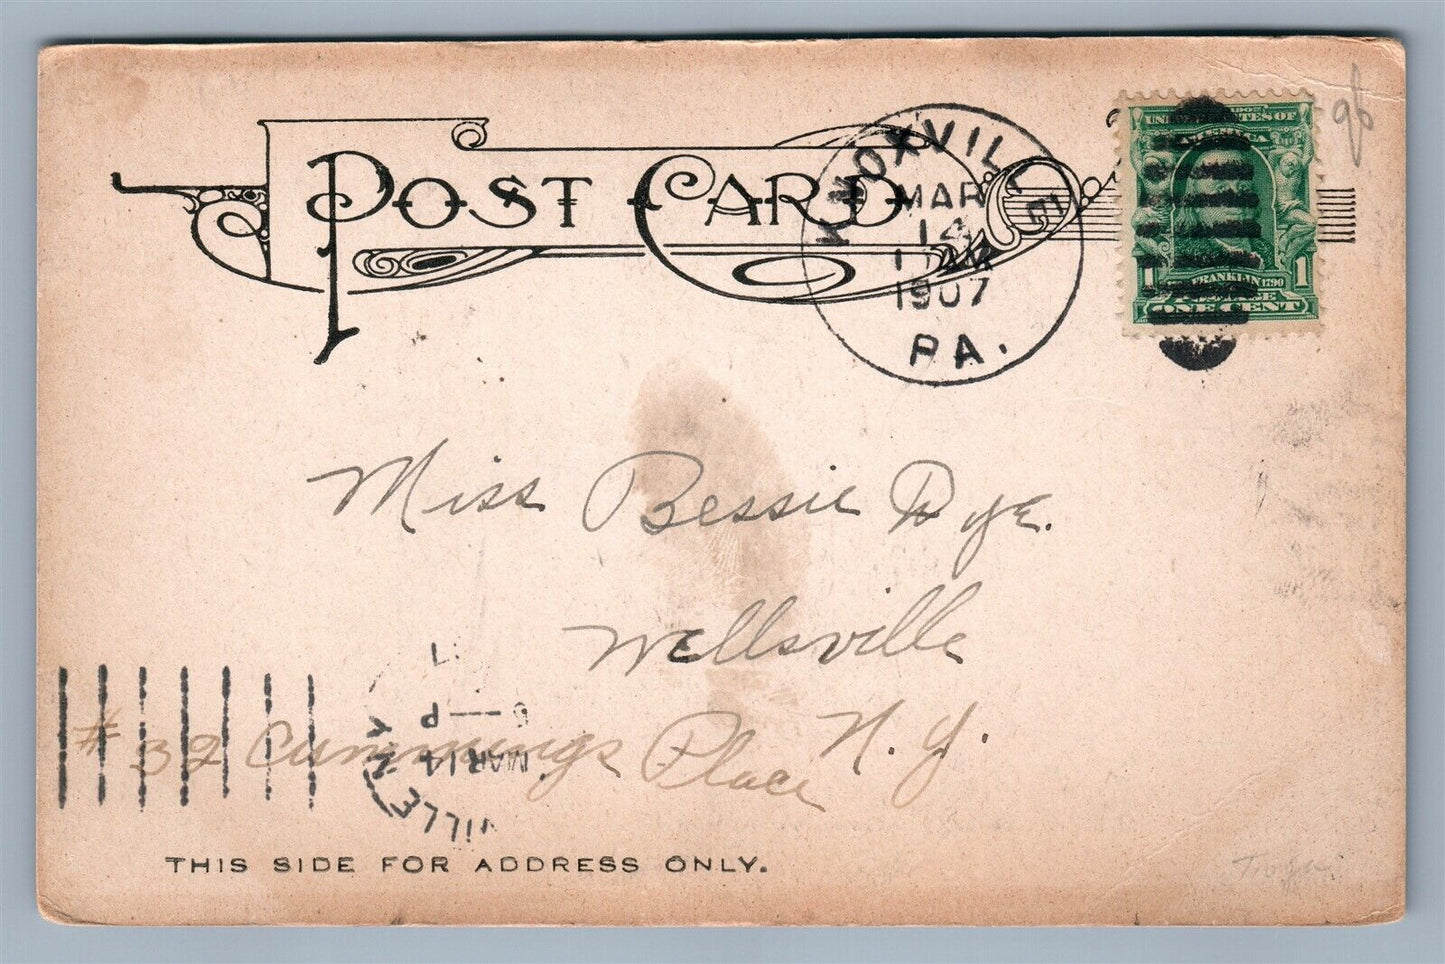 POST CARD
KNOXVILLE
MAR
14
11 AM
1907
PA.
UNITED STATES OF
AMERICA
FRANKLIN 1790
1 1
POSTAGE
ONE CENT
96
Miss Bessie Dye.
Wellsville
N. Y.
#32 Cummings Place
VILLE N.Y.
MAR 14
6 — P
7
THIS SIDE FOR ADDRESS ONLY.
Tioga